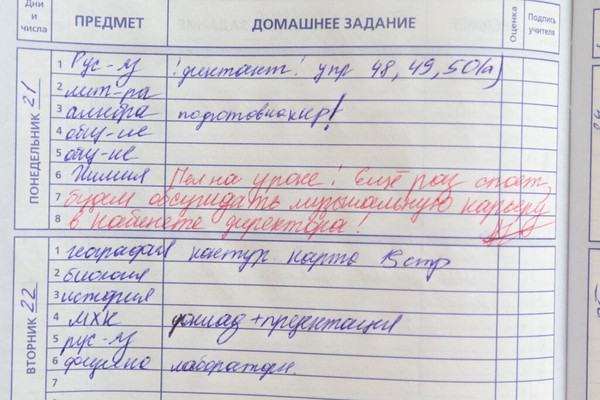 Дни и числа ПРЕДМЕТ ДОМАШНЕЕ ЗАДАНИЕ Оценка Подпись учителя
ПОНЕДЕЛЬНИК 21
1 Рус-яз !диктант! упр 48, 49, 50(а)
2 лит-ра
3 алгебра подготовка к кр!
4 общ-ие
5 общ-ие
6 Химия Пел на уроке! Ещё раз споет,
7 будем обсуждать музыкальную карьеру
8 в кабинете директора!
ВТОРНИК 22
1 география контур. карта
2 биология
3 история
4 МХК доклад + презентация
5 рус-яз
6 физика лаборатор.
7